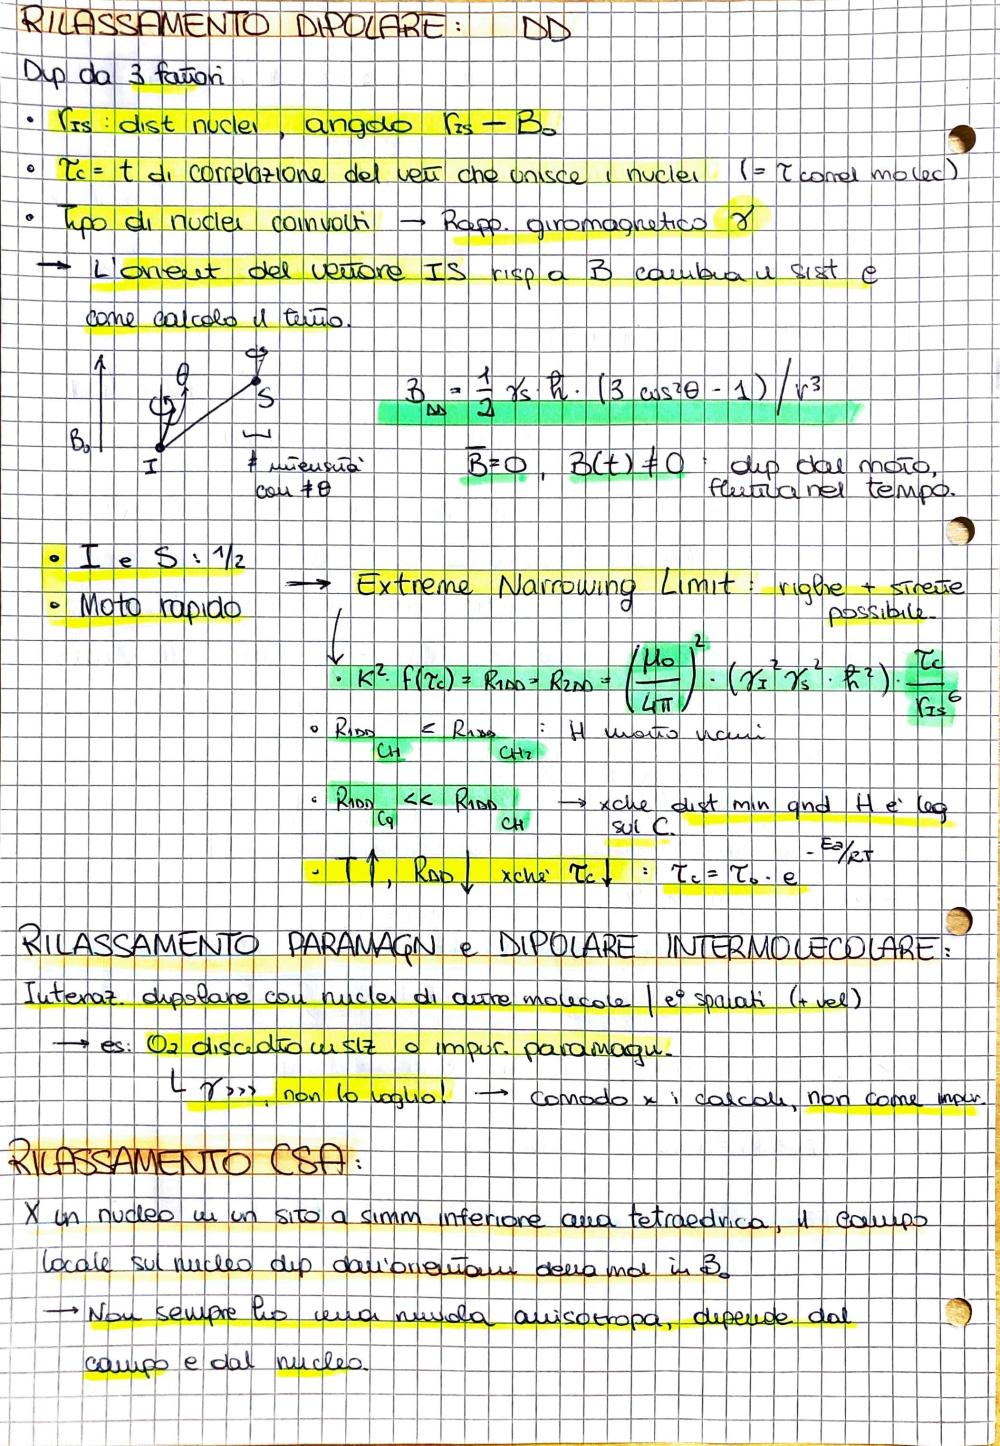 RILASSAMENTO DIPOLARE: DD
Dip da 3 fattori
• rIS: dist nuclei, angolo rIS – B₀
• τc = t di correlazione del vett che unisce i nuclei (= τ correl molec)
• Tipo di nuclei coinvolti → Rapp. giromagnetico γ
→ L'orient del vettore IS risp a B cambia il sist e
come calcolo il tutto.
B₀ I θ S
≠ intensità
con ≠ θ
B_DD = 1/2 γs · ħ · (3 cos²θ - 1) / r³
B̄=0, B(t) ≠ 0 : dip dal moto,
fluttua nel tempo.
• I e S : 1/2
• Moto rapido
→ Extreme Narrowing Limit : righe + strette
possibile.
• K² · f(τc) = R1DD = R2DD = (μ₀/4π)² · (γI² γs² · ħ²) · τc/rIS⁶
• R1DD CH < R1DD CH2 : H molto vicini
• R1DD Cq << R1DD CH → xche dist min qnd H è leg
sul C.
• T↑, RDD↓ xchè τc↓ : τc = τ₀ · e^-Ea/RT
RILASSAMENTO PARAMAGN e DIPOLARE INTERMOLECOLARE:
Interaz. dipolare con nuclei di altre molecole / e⁻ spaiati (+ vel)
→ es: O₂ disciolto in slz o impur. paramagn.
└ γ>>>, non lo voglio! → comodo x i calcoli, non come impur.
RILASSAMENTO CSA:
X un nucleo in un sito a simm inferiore alla tetraedrica, il campo
locale sul nucleo dip dall'orientam della mol in B₀
→ Non sempre ho una nuvola anisotropa, dipende dal
campo e dal nucleo.